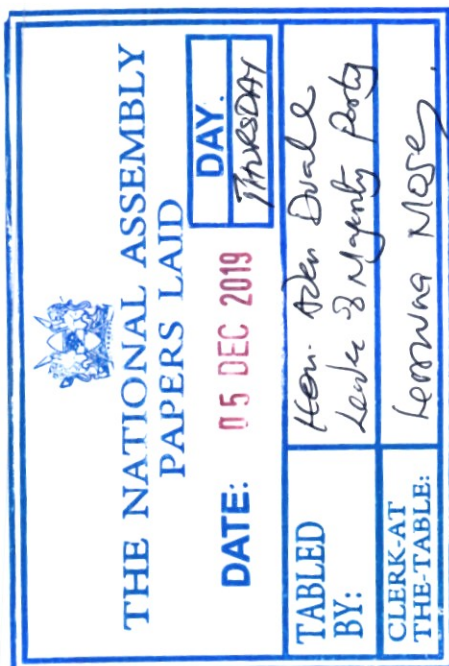 THE NATIONAL ASSEMBLY
PAPERS LAID
DATE: 05 DEC 2019
DAY.
THURSDAY
TABLED
BY:
Hon. Aden Duale
Leader of Majority Party
CLERK-AT
THE-TABLE:
Mosey